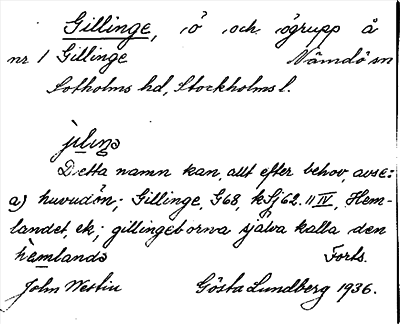 Gillinge, ö och ögrupp å
nr 1 Gillinge Nämdö sn
Sotholms hd, Stockholms l.
jiliŋə
Detta namn kan, allt efter behov, avse:
a) huvudön; Gillinge, G68, kSj62. II IV, Hem-
landet, ek; gillingeborna själva kalla den
hemlandə Forts.
John Westin Gösta Lundberg 1936.